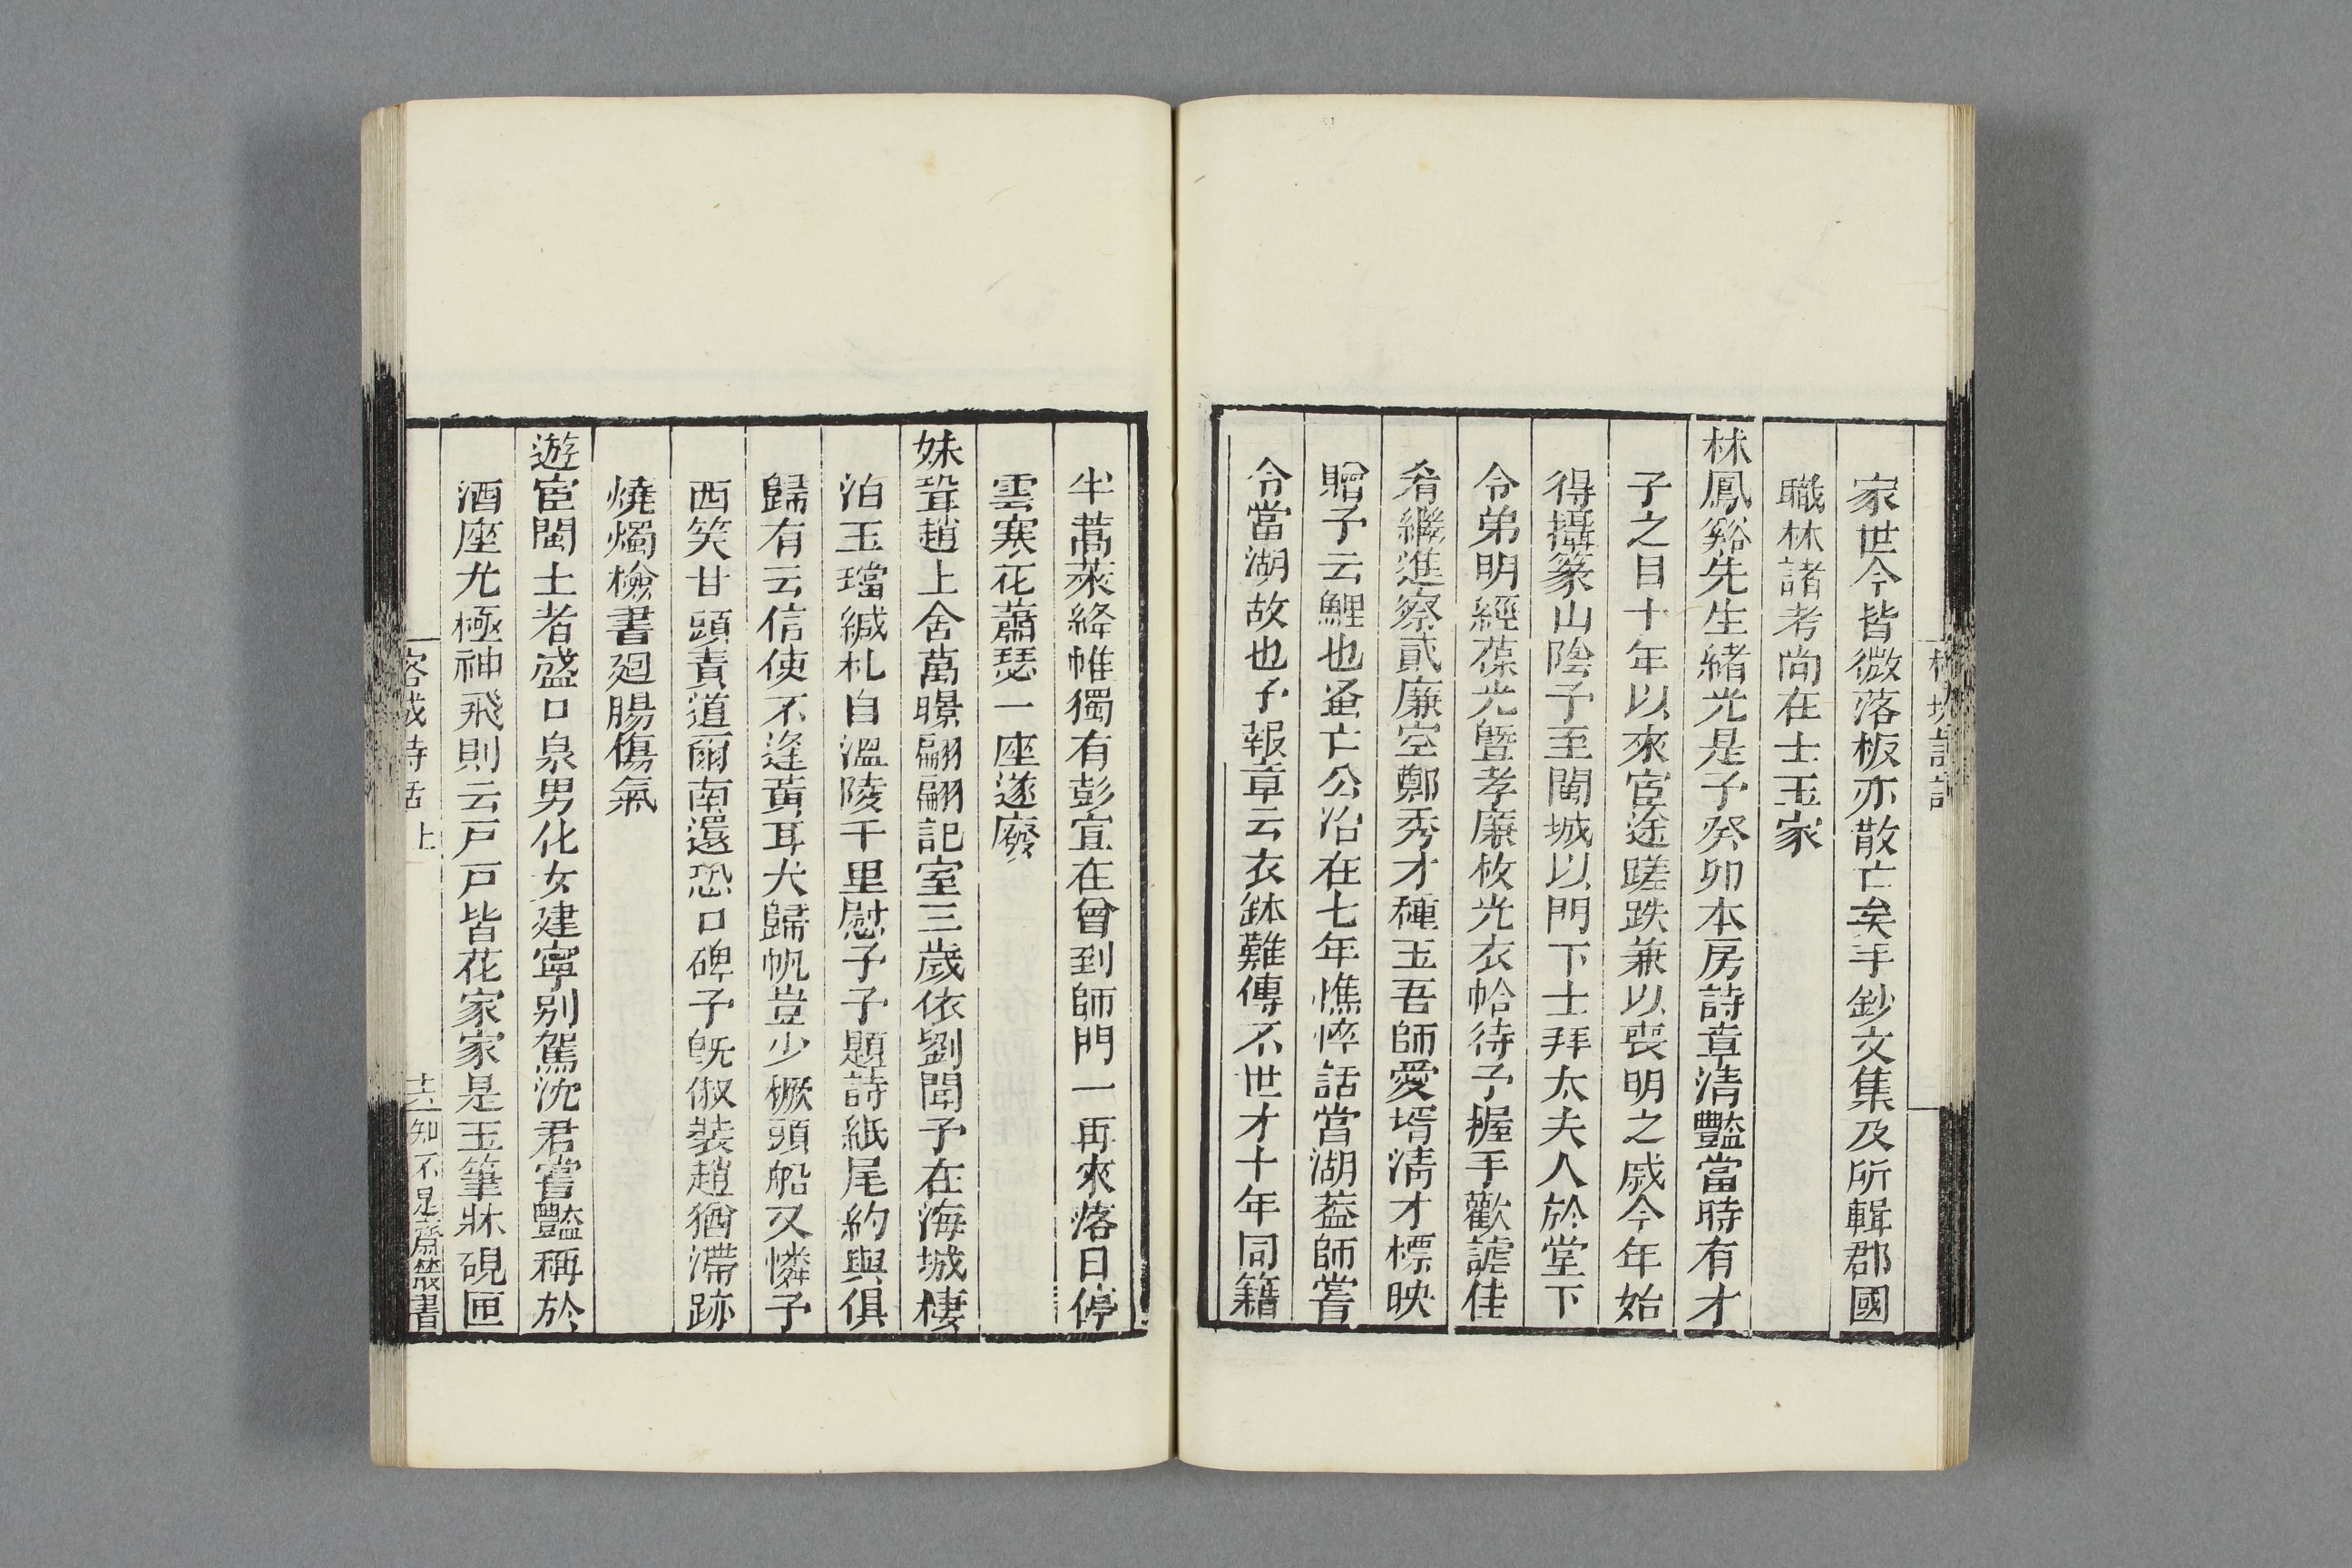 家世今皆微落板亦散亡矣手鈔文集及所輯郡國
職林諸考尚在士玉家
林鳳谿先生緒光是予癸卯本房詩章清豔當時有才
子之目十年以來宦途蹉跌兼以喪明之戚今年始
得攝篆山陰予至閩城以門下士拜太夫人於堂下
令弟明經葆光暨孝廉枚光衣帢待予握手歡謔佳
肴繼進察貳廉室鄭秀才種玉吾師愛壻清才標映
贈予云鯉也蚤亡公冶在七年憔悴話當湖葢師嘗
令當湖故也予報章云衣鉢難傳不世才十年同籍
半蒿萊絳帷獨有彭宣在曾到師門一再來落日停
雲寒花蕭瑟一座遂廢
妹聟趙上舍萬暻翩翩記室三歲依劉聞予在海城棲
泊玉璫緘札自溫陵千里慰予予題詩紙尾約與俱
歸有云信使不逢黃耳犬歸帆豈少橛頭船又憐予
西笑甘頭責道爾南還恐口碑予旣俶裝趙猶滯跡
燒燭檢書廻腸傷氣
遊宦閩土者盛口泉男化女建寧别駕沈君嘗豔稱於
酒座尤極神飛則云戸戸皆花家家是玉筆牀硯匣
詩話 上
知不足齋叢書